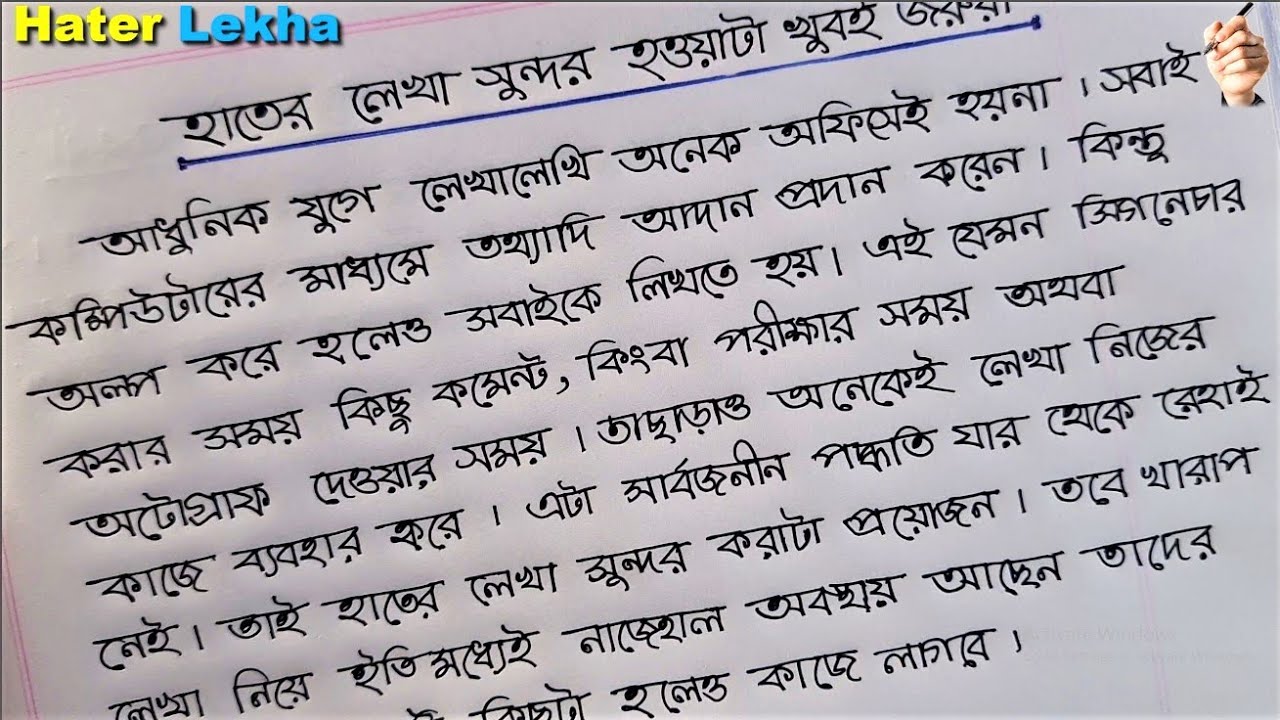 Hater Lekha
হাতের লেখা সুন্দর হওয়াটা খুবই জরুরী
আধুনিক যুগে লেখালেখি অনেক অফিসেই হয়না । সবাই
কম্পিউটারের মাধ্যমে তথ্যাদি আদান প্রদান করেন । কিন্তু
অল্প করে হলেও সবাইকে লিখতে হয় । এই যেমন সিগনেচার
করার সময় কিছু কমেন্ট, কিংবা পরীক্ষার সময় অথবা
অটোগ্রাফ দেওয়ার সময় । তাছাড়াও অনেকেই লেখা নিজের
কাজে ব্যবহার করে । এটা সার্বজনীন পদ্ধতি যার থেকে রেহাই
নেই । তাই হাতের লেখা সুন্দর করাটা প্রয়োজন । তবে খারাপ
লেখা নিয়ে ইতিমধ্যেই নাজেহাল অবস্থায় আছেন তাদের
কিছুটা হলেও কাজে লাগবে ।
Activate Windows